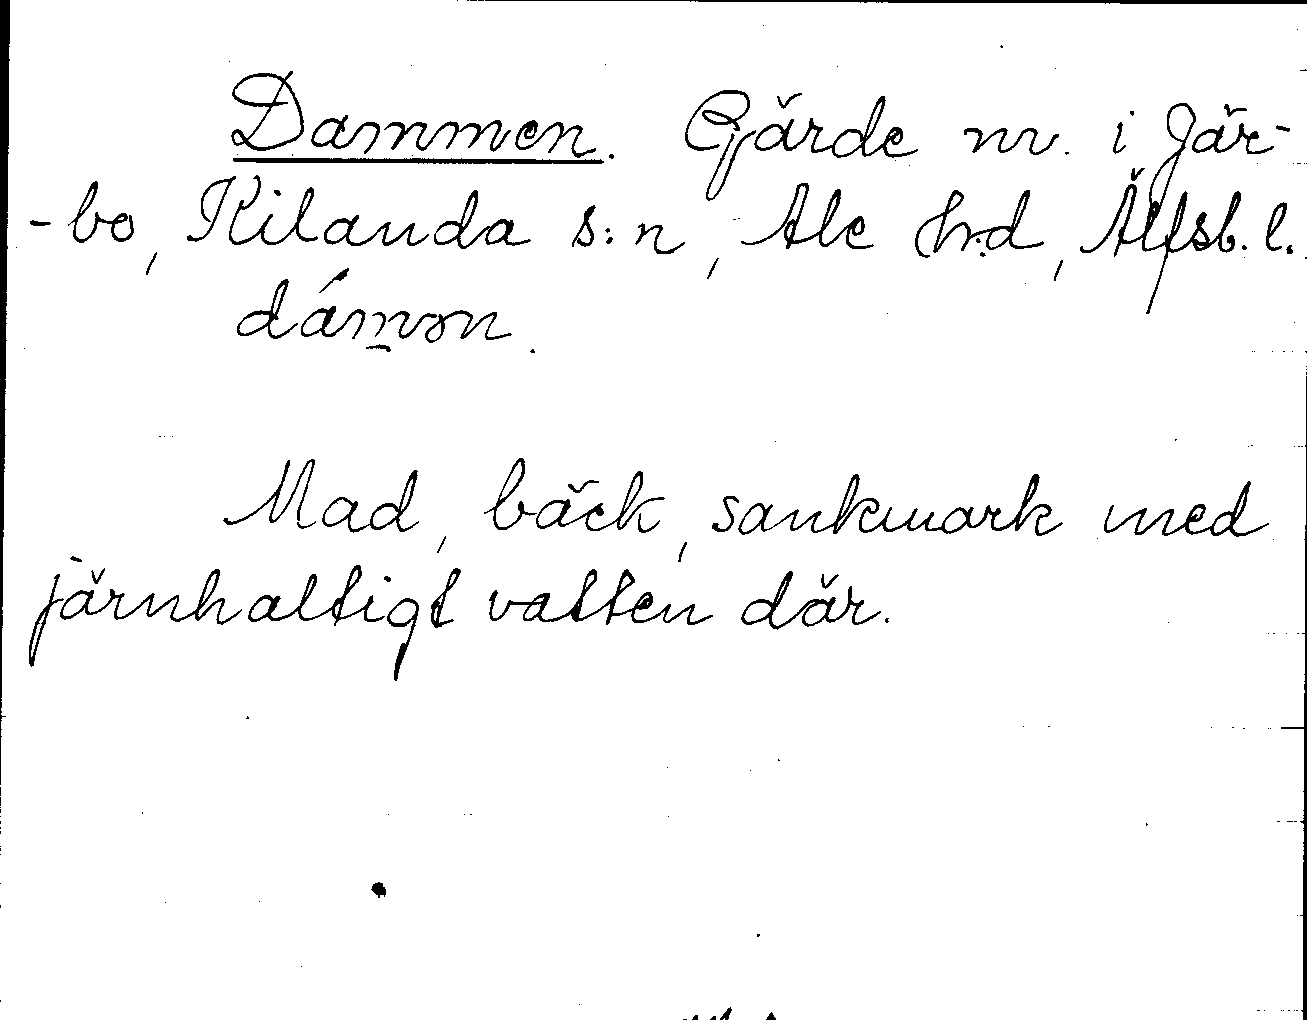 Dammen. Gärde nv. i Jär-
-bo, Kilanda s:n, Ale hd, Älfsb. l.
dámən.
Mad, bäck, sankmark med
järnhaltigt vatten där.